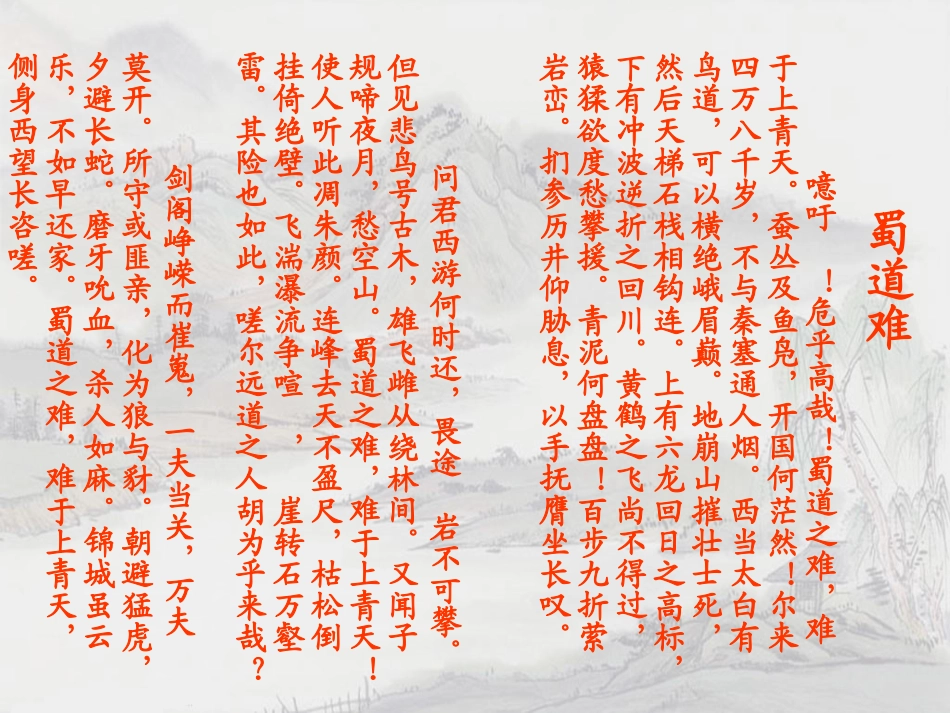 蜀道难
噫吁　！危乎高哉！蜀道之难，难
于上青天。蚕丛及鱼凫，开国何茫然！尔来
四万八千岁，不与秦塞通人烟。西当太白有
鸟道，可以横绝峨眉巅。地崩山摧壮士死，
然后天梯石栈相钩连。上有六龙回日之高标，
下有冲波逆折之回川。黄鹤之飞尚不得过，
猿猱欲度愁攀援。青泥何盘盘！百步九折萦
岩峦。扪参历井仰胁息，以手抚膺坐长叹。
问君西游何时还，畏途　岩不可攀。
但见悲鸟号古木，雄飞雌从绕林间。又闻子
规啼夜月，愁空山。蜀道之难，难于上青天！
使人听此凋朱颜。连峰去天不盈尺，枯松倒
挂倚绝壁。飞湍瀑流争喧　，　崖转石万壑
雷。其险也如此，嗟尔远道之人胡为乎来哉？
剑阁峥嵘而崔嵬，一夫当关，万夫
莫开。所守或匪亲，化为狼与豺。朝避猛虎，
夕避长蛇。磨牙吮血，杀人如麻。锦城虽云
乐，不如早还家。蜀道之难　难于上青天，
侧身西望长咨嗟。